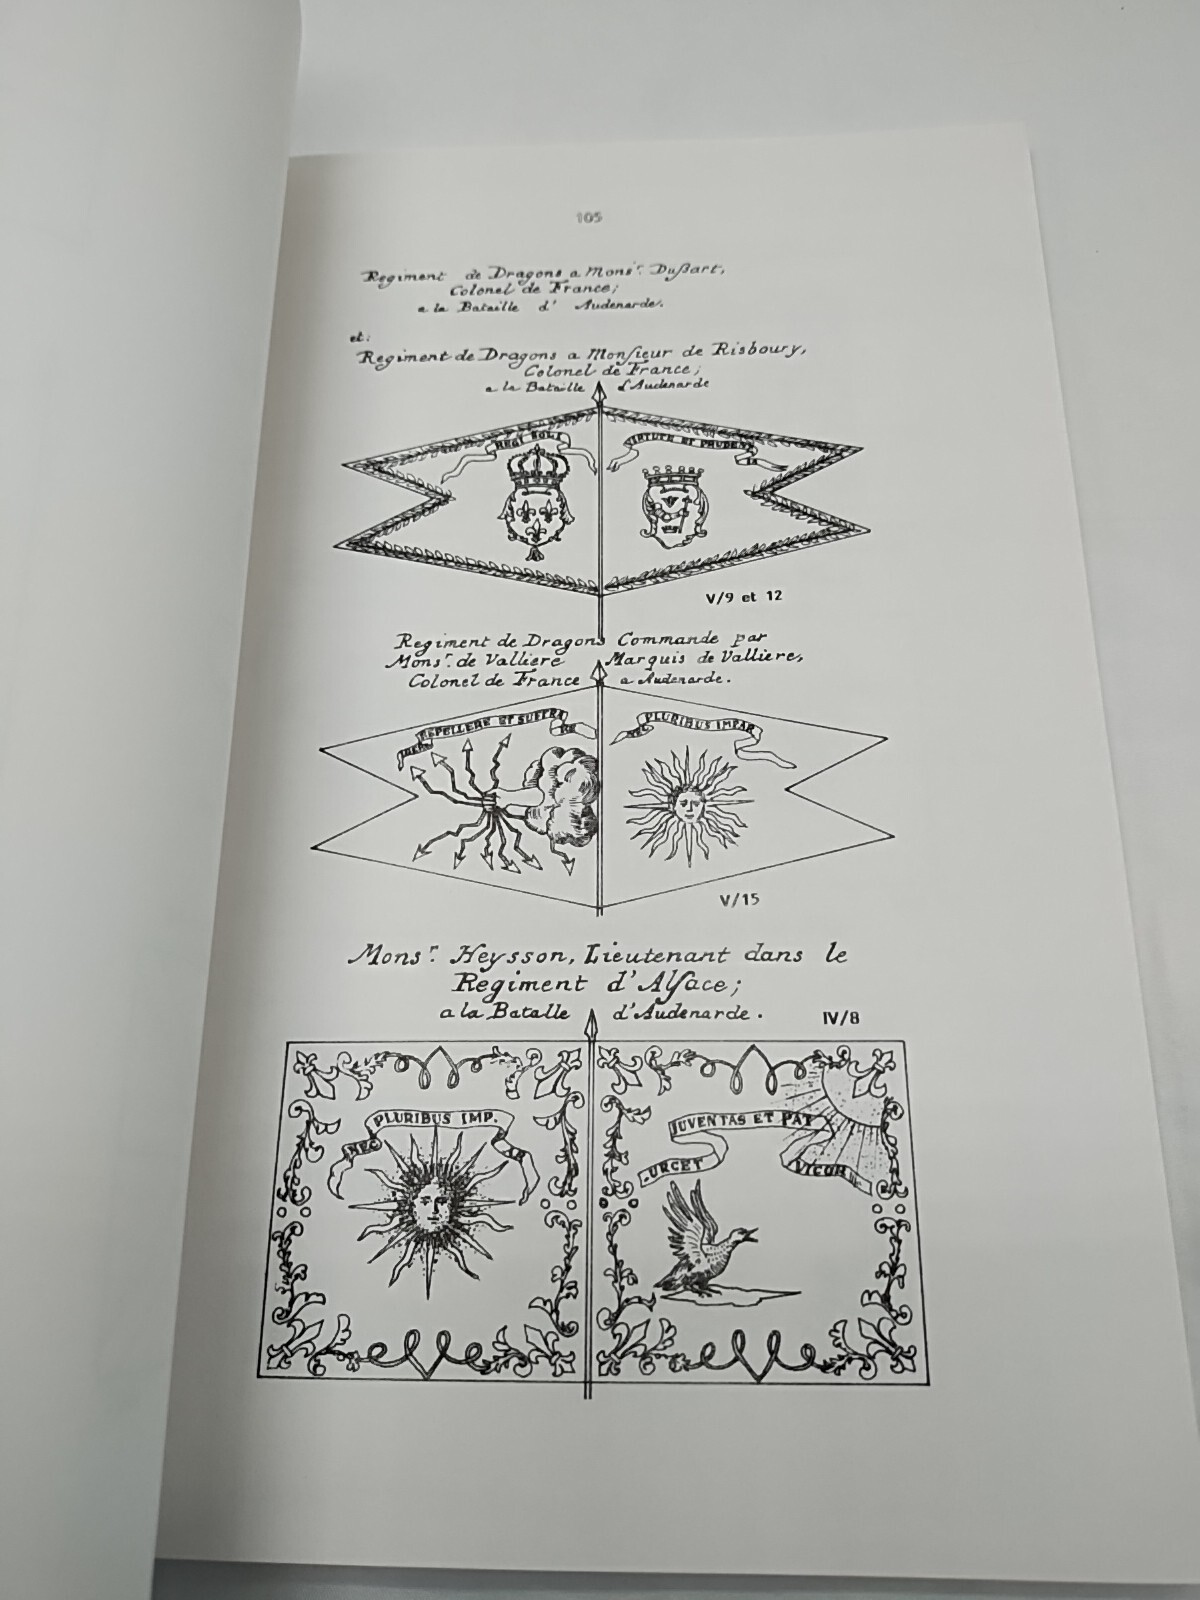 105
Regiment de Dragons a Monsr. Dußart,
Colonel de France;
a la Bataille d' Audenarde.
et:
Regiment de Dragons a Monsieur de Risboury,
Colonel de France;
a la Bataille d'Audenarde
REGI SOLI
VIRTUTE ET PRUDENTIA
V/9 et 12
Regiment de Dragons Commande par
Monsr. de Valliere Marquis de Valliere,
Colonel de France a Audenarde.
REPELLERE ET SUFFERRE
NEC PLURIBUS IMPAR
V/15
Monsr. Heysson, Lieutenant dans le
Regiment d'Alsace;
a la Batalle d'Audenarde.
IV/8
NEC PLURIBUS IMP. AR
JUVENTAS ET PAT
URGET VIGOR